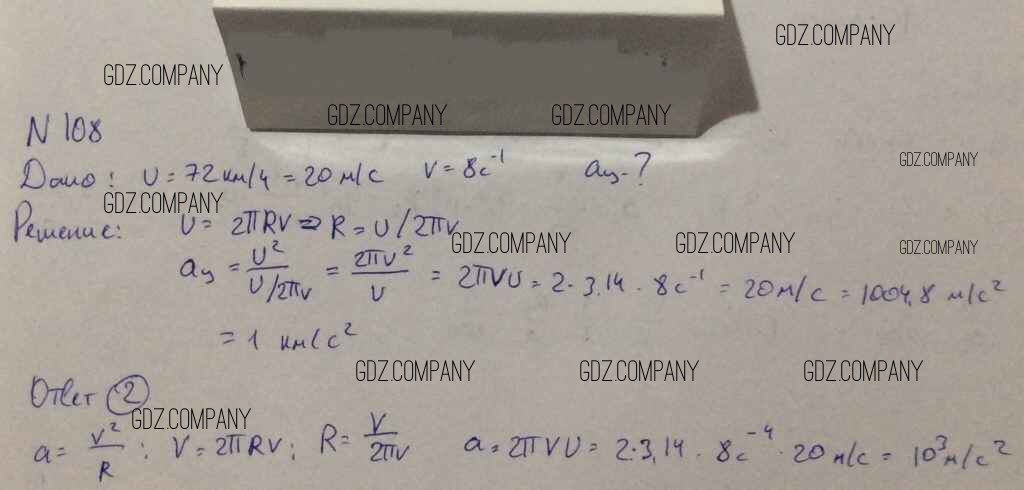 GDZ.COMPANY
GDZ.COMPANY
GDZ.COMPANY GDZ.COMPANY
N 108
GDZ.COMPANY
Дано: υ = 72 км/ч = 20 м/с ν = 8 с⁻¹ aц - ?
GDZ.COMPANY
Решение: υ = 2πRν ⇒ R = υ/2πν
GDZ.COMPANY GDZ.COMPANY GDZ.COMPANY
aц = υ²/(υ/2πν) = 2πυ²/υ = 2πνυ = 2·3,14 · 8с⁻¹ = 20 м/с = 1004,8 м/с²
= 1 км/с²
GDZ.COMPANY GDZ.COMPANY GDZ.COMPANY
Ответ 2
GDZ.COMPANY
a = v²/R ; V = 2πRV; R = V/2πν a = 2πVU = 2·3,14 · 8с⁻⁴ · 20 м/с = 10³ м/с²